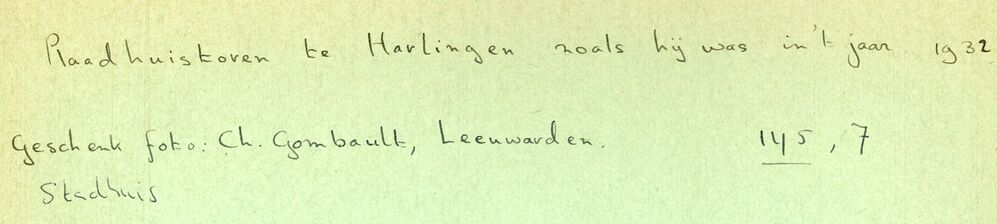 Raadhuistoren te Harlingen zoals hij was in 't jaar 1932
Geschenk foto: Ch. Gombault, Leeuwarden. 145, 7
Stadhuis